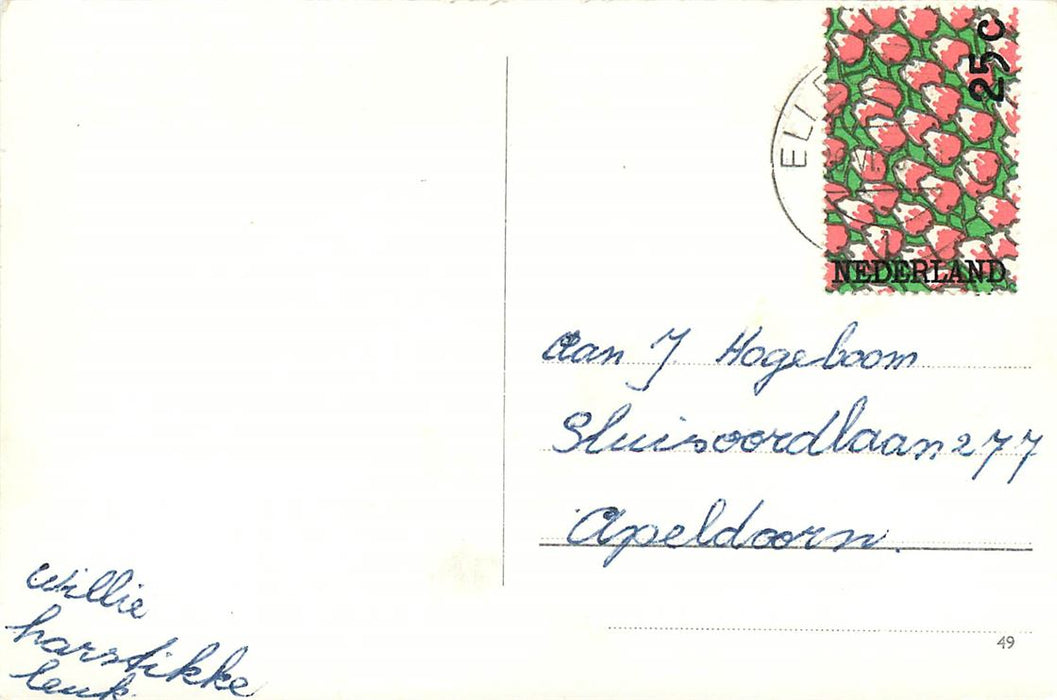 25 c
NEDERLAND
Aan J Hogeboom
Sluisoordlaan 277
Apeldoorn.
Willie
harstikke
leuk.
49